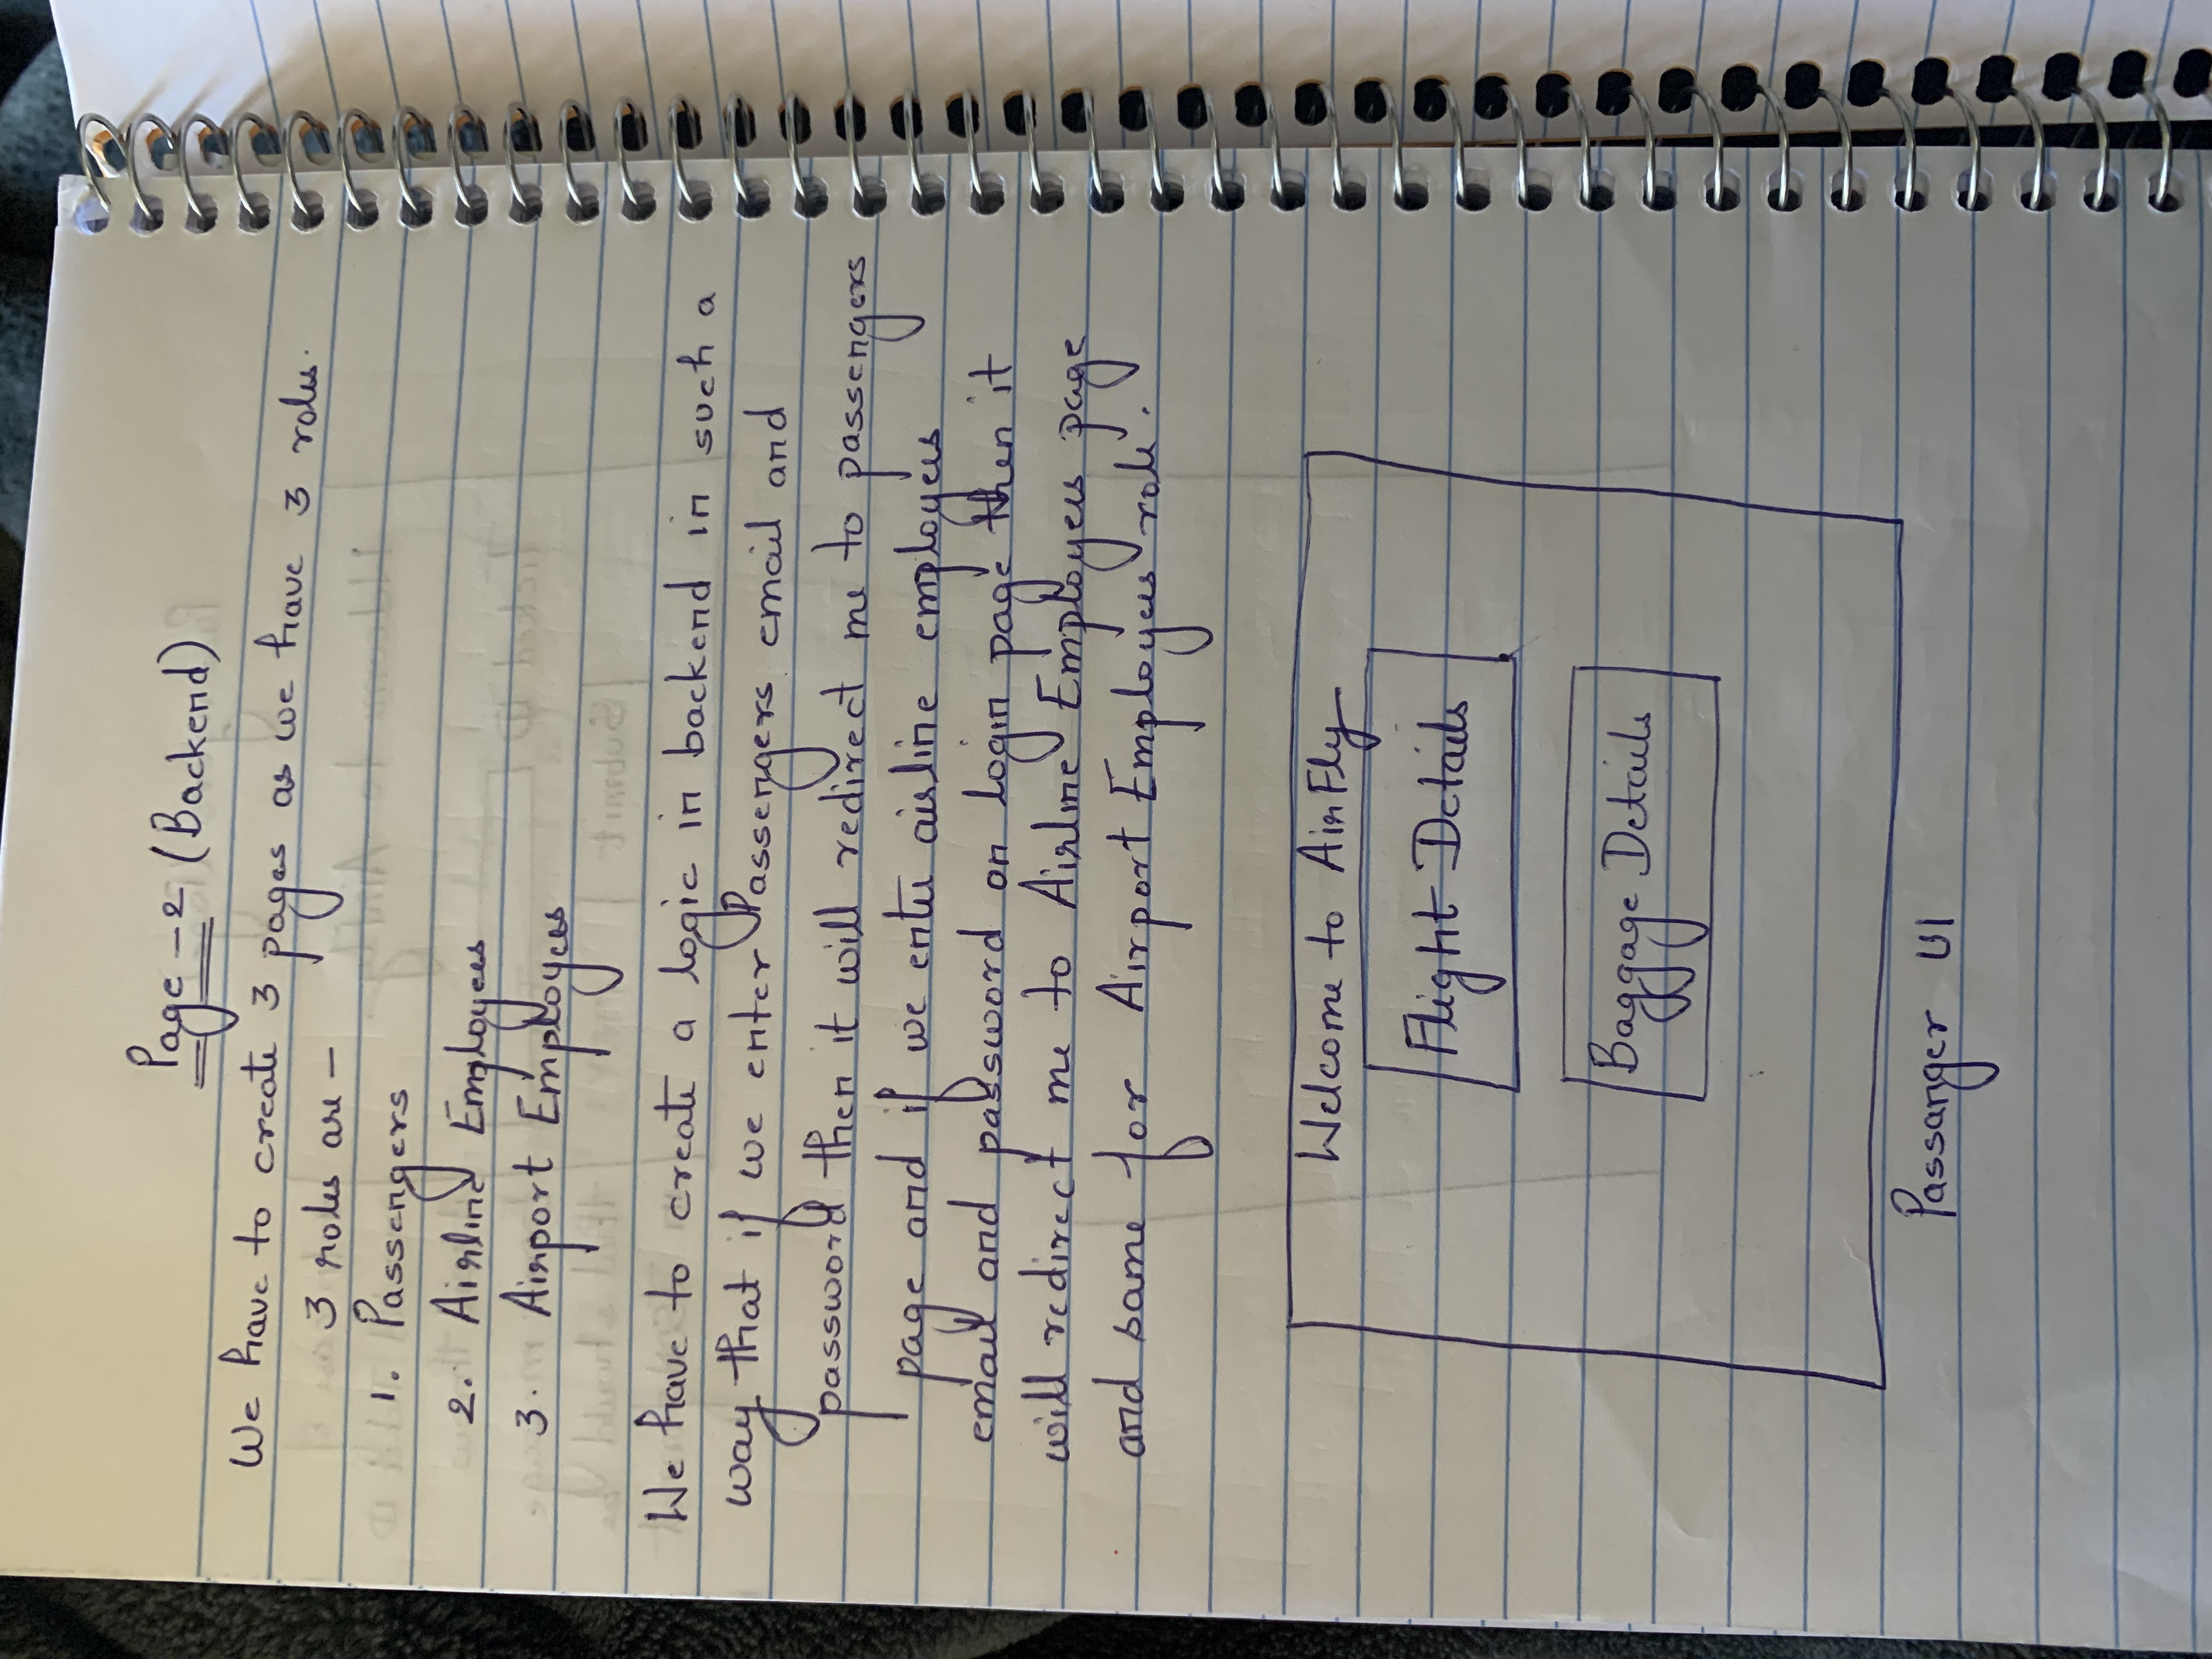 Page -2 (Backend)
We have to create 3 pages as we have 3 roles.
3 roles are -
1. Passengers
2. Airline Employees
3. Airport Employees
We have to create a logic in backend in such a
way that if we enter Passengers email and
password then it will redirect me to passengers
page and if we enter airline employees
email and password on login page then it
will redirect me to Airline Employees page
and same for Airport Employees role.
Welcome to AirFly
Flight Details
Baggage Details
Passanger UI